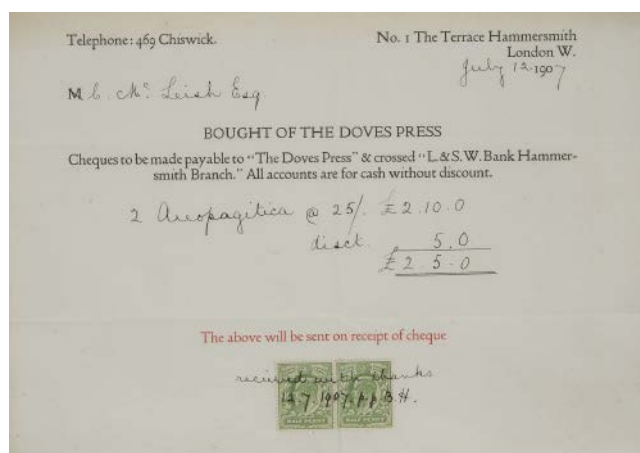 Telephone: 469 Chiswick.
No. 1 The Terrace Hammersmith
London W.
July 12·1907
M C. Mc. Leish Esq.
BOUGHT OF THE DOVES PRESS
Cheques to be made payable to "The Doves Press" & crossed "L. & S. W. Bank Hammer-
smith Branch." All accounts are for cash without discount.
2 Areopagitica @ 25/. £2.10.0
disct. 5.0
£2.5.0
The above will be sent on receipt of cheque
received with thanks
12.7.1907. p.p. B.H.
HALF PENNY HALF PENNY